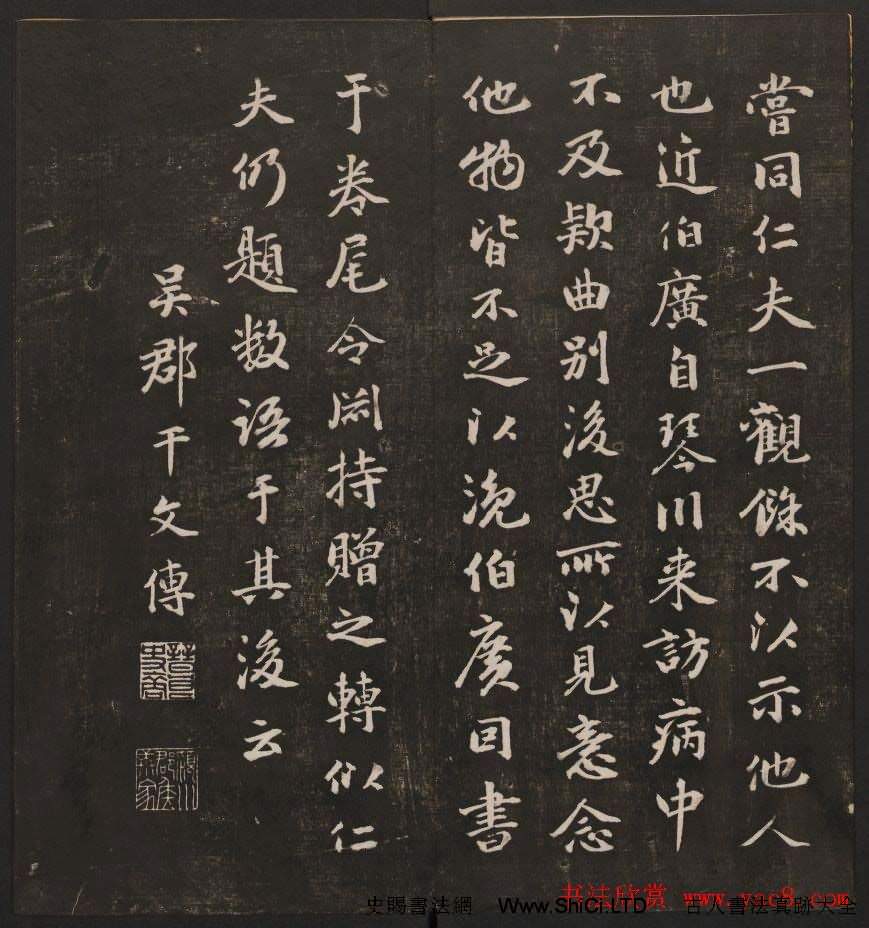 嘗同仁夫一觀餘不以示他人
也近伯廣自琴川来訪病中
不及款曲别後思所以见意念
他物皆不足以浼伯廣因書
于卷尾令淵持贈之轉似仁
夫仍題数語于其後云
吳郡干文傳
書法欣赏 www.yac8.com
史賜書法網 Www.ShiCi.LTD 古人書法真跡大全